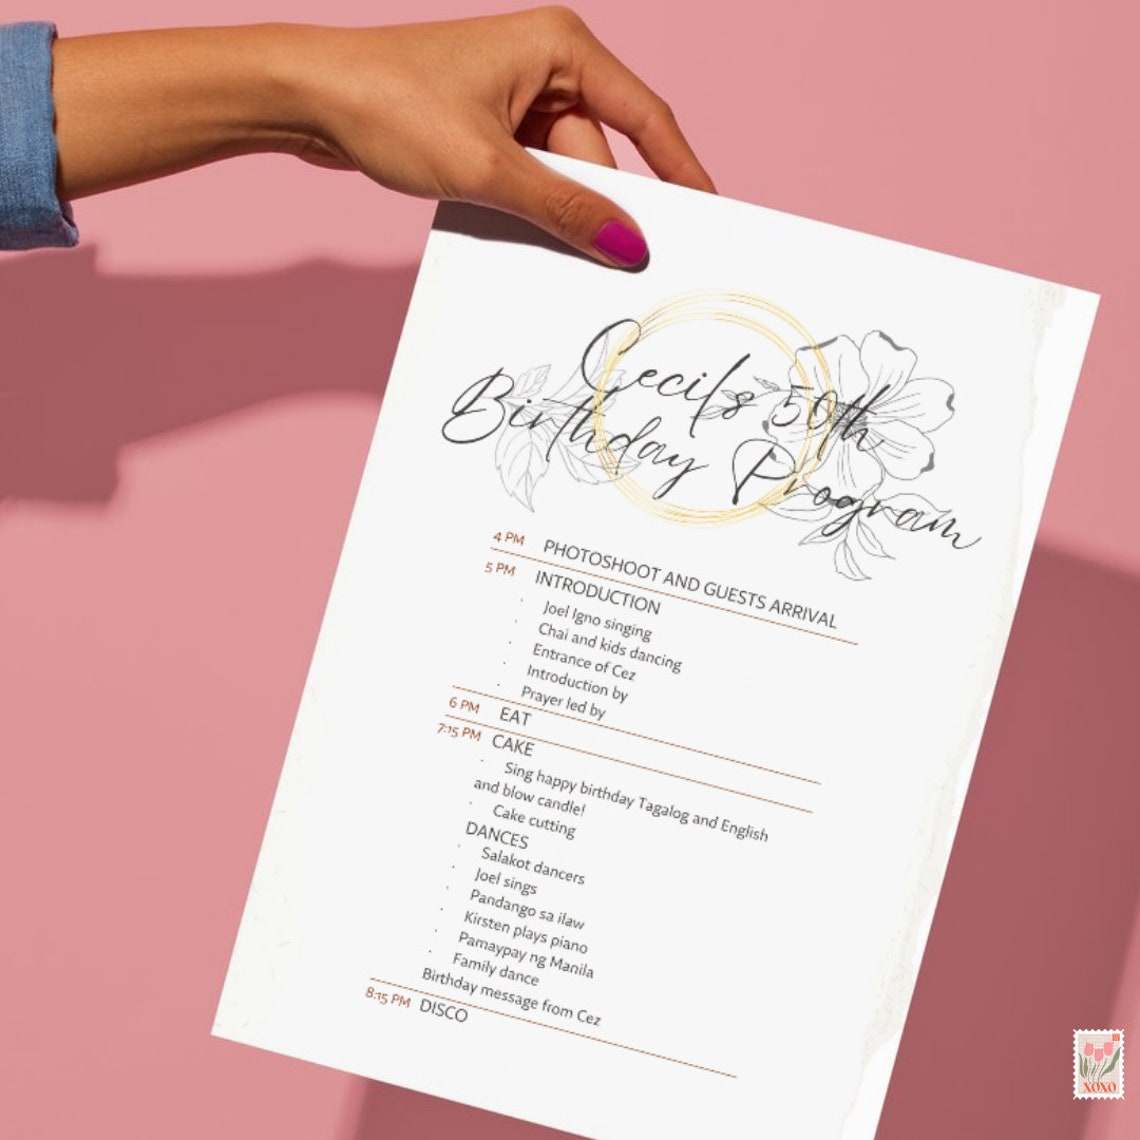 Cecil's 50th
Birthday Program
4 PM PHOTOSHOOT AND GUESTS ARRIVAL
5 PM INTRODUCTION
· Joel Igno singing
· Chai and kids dancing
· Entrance of Cez
· Introduction by
· Prayer led by
6 PM EAT
7:15 PM CAKE
· Sing happy birthday Tagalog and English
and blow candle!
· Cake cutting
DANCES
· Salakot dancers
· Joel sings
· Pandango sa ilaw
· Kirsten plays piano
· Pamaypay ng Manila
· Family dance
Birthday message from Cez
8:15 PM DISCO
XOXO